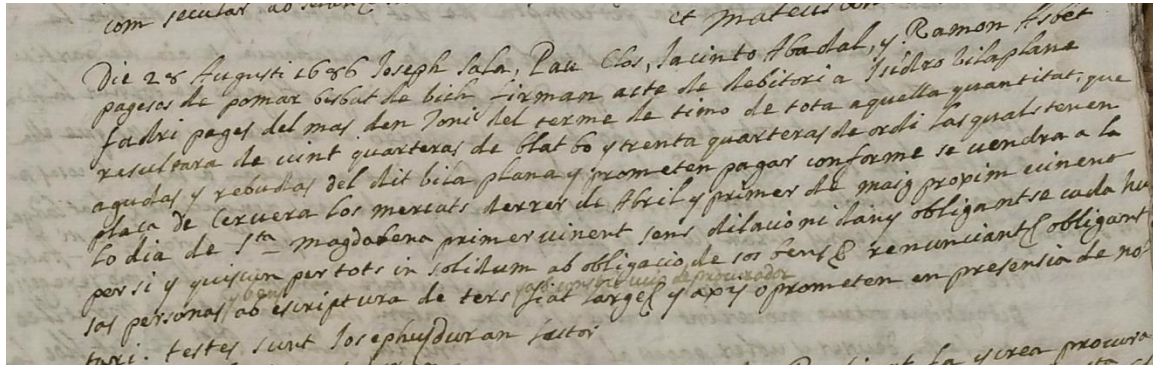 com secular ab
et Mateu
Die 28 Augusti 1686 Joseph Sala, Pau Clos, Jacinto Abadal, y Ramon Asbet
pagesos de pomar bisbat de bich firman acte de debitori a Isidro bilaplana
fadri pages del mas den Joni del terme de timo de tota aquella quantitat, que
resultara de vint quarteras de blat bo y trenta quarteras de ordi las quals tenen
agudas y rebudas del dit bila plana y prometen pagar conforme se vendra a la
plaça de Cervera los mercats derrer de Abril y primer de maig proxim vinent
lo dia de Sta magdalena primer vinent sens dilacio ni dany obligantse cada hu
per si y quiscun per tots in solidum ab obligacio de sos bens & renunciant & obligant
sas personas y bens ab escriptura de ters fiat large & y axi o prometen en presensia de no
ab constitucio de procurador
tari. testes sunt Josephus duran sastor
la procura